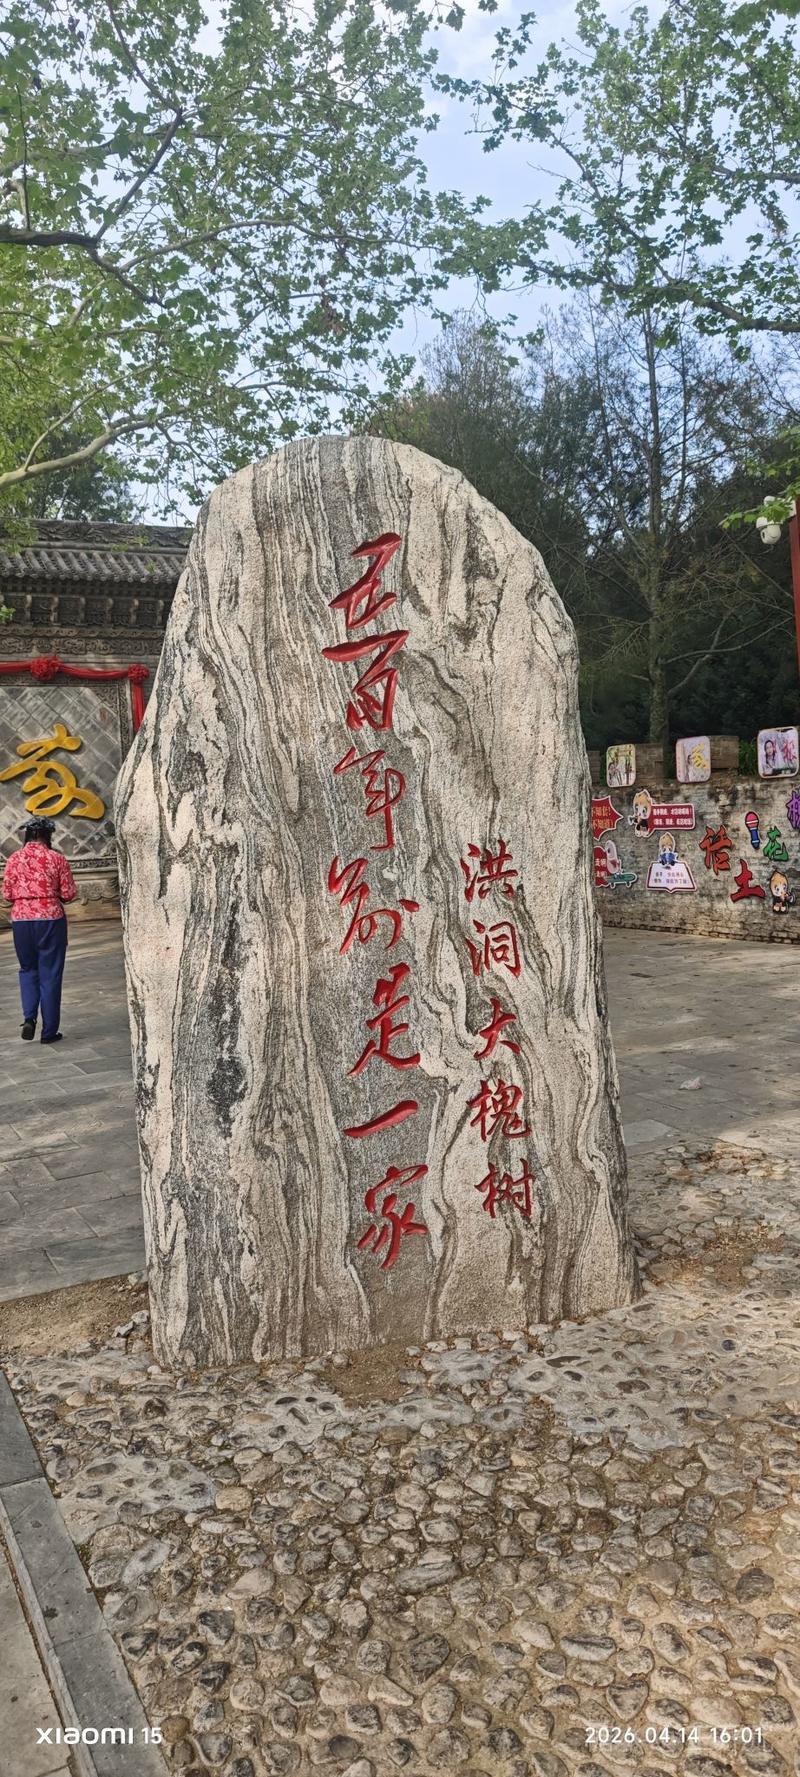 洪洞大槐树
五百年前是一家
家
话
土
花
XIAOMI 15
2026.04.14 16:01